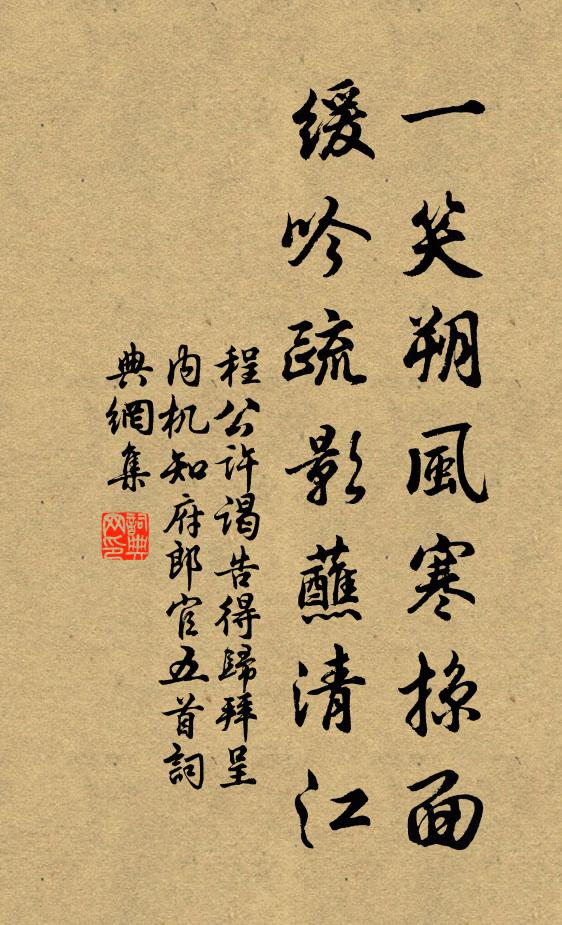 一笑朔風寒掠面
緩吟疏影蘸清江
程公許謁告得歸拜呈
内机知府郎官五首詞
典網集
詞典
网印